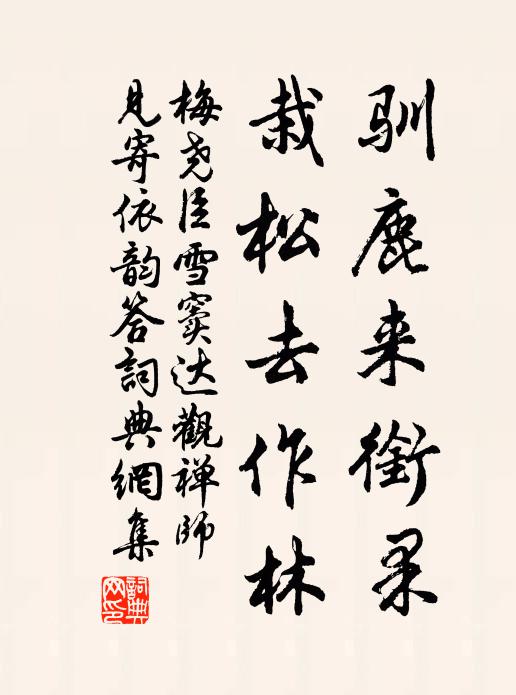 驯鹿来衔果
栽松去作林
梅尧臣雪窦达觀禅師
見寄依韵答詞典網集